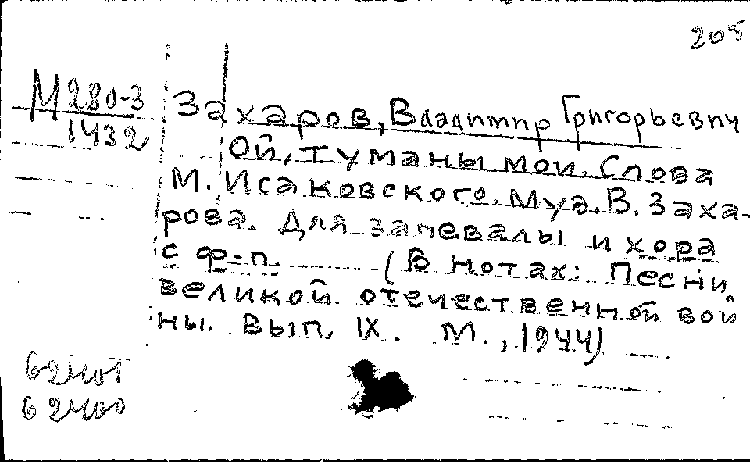 205
М280-3
1432
Захаров, Владимир Григорьевич
Ой, туманы мои. Слова
М. Исаковского. Муз. В. Заха-
рова. Для запевалы и хора
с ф.-п. (В нотах: Песни
великой отечественной вой
ны. Вып. IX. М., 1944)